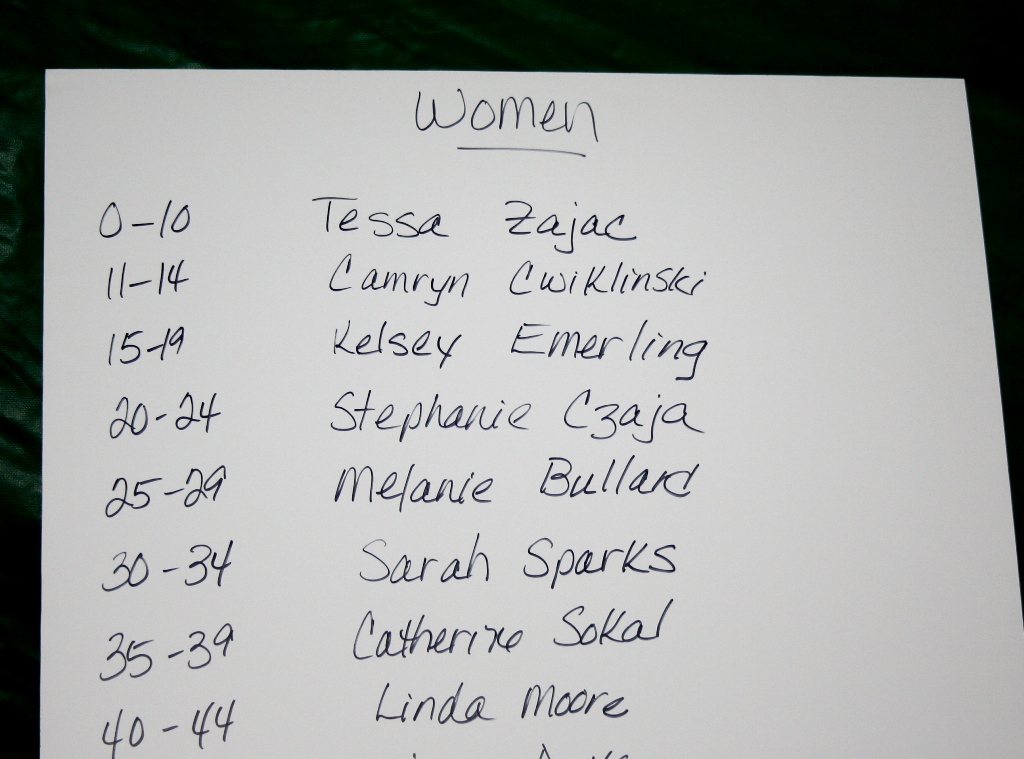 Women
0-10 Tessa Zajac
11-14 Camryn Cwiklinski
15-19 Kelsey Emerling
20-24 Stephanie Czaja
25-29 Melanie Bullard
30-34 Sarah Sparks
35-39 Catherine Sokal
40-44 Linda Moore